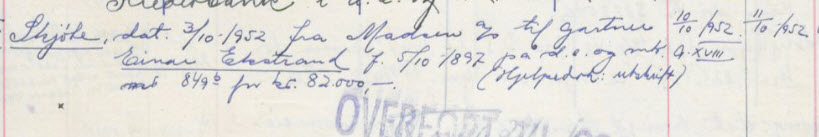 Skjøte, dat. 3/10-1952 fra Madsen a/s til gartner 10/10 1952. 11/10 1952
Einar Ekstrand f. 5/10-1897 på d.e. og mtr G. XVIII
849 b for kr. 82.000,-. (Hjelpedok: utskrift)
OVERFØRT